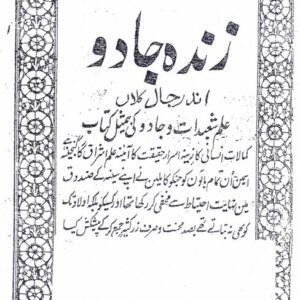 زندہ جادو
اندر جال کلاں
علم شعبدات و جادو کی بیمثل کتاب
کمالات انسانی کا خزینہ اسرار حقیقت کا آئینہ علم اشراق کا گنجینہ ہے
اسمیں اُن تمام باتوں کو جنکو کاملین نے اپنے سینہ کے صندوق
میں نہایت احتیاط سے مخفی کر رکھا تھا اور کسیکو بلکہ اولاد تک
کو بھی نہ بتاتے تھے بصد محنت و صرف زر کثیر جمع کر کے پیشکش کیا